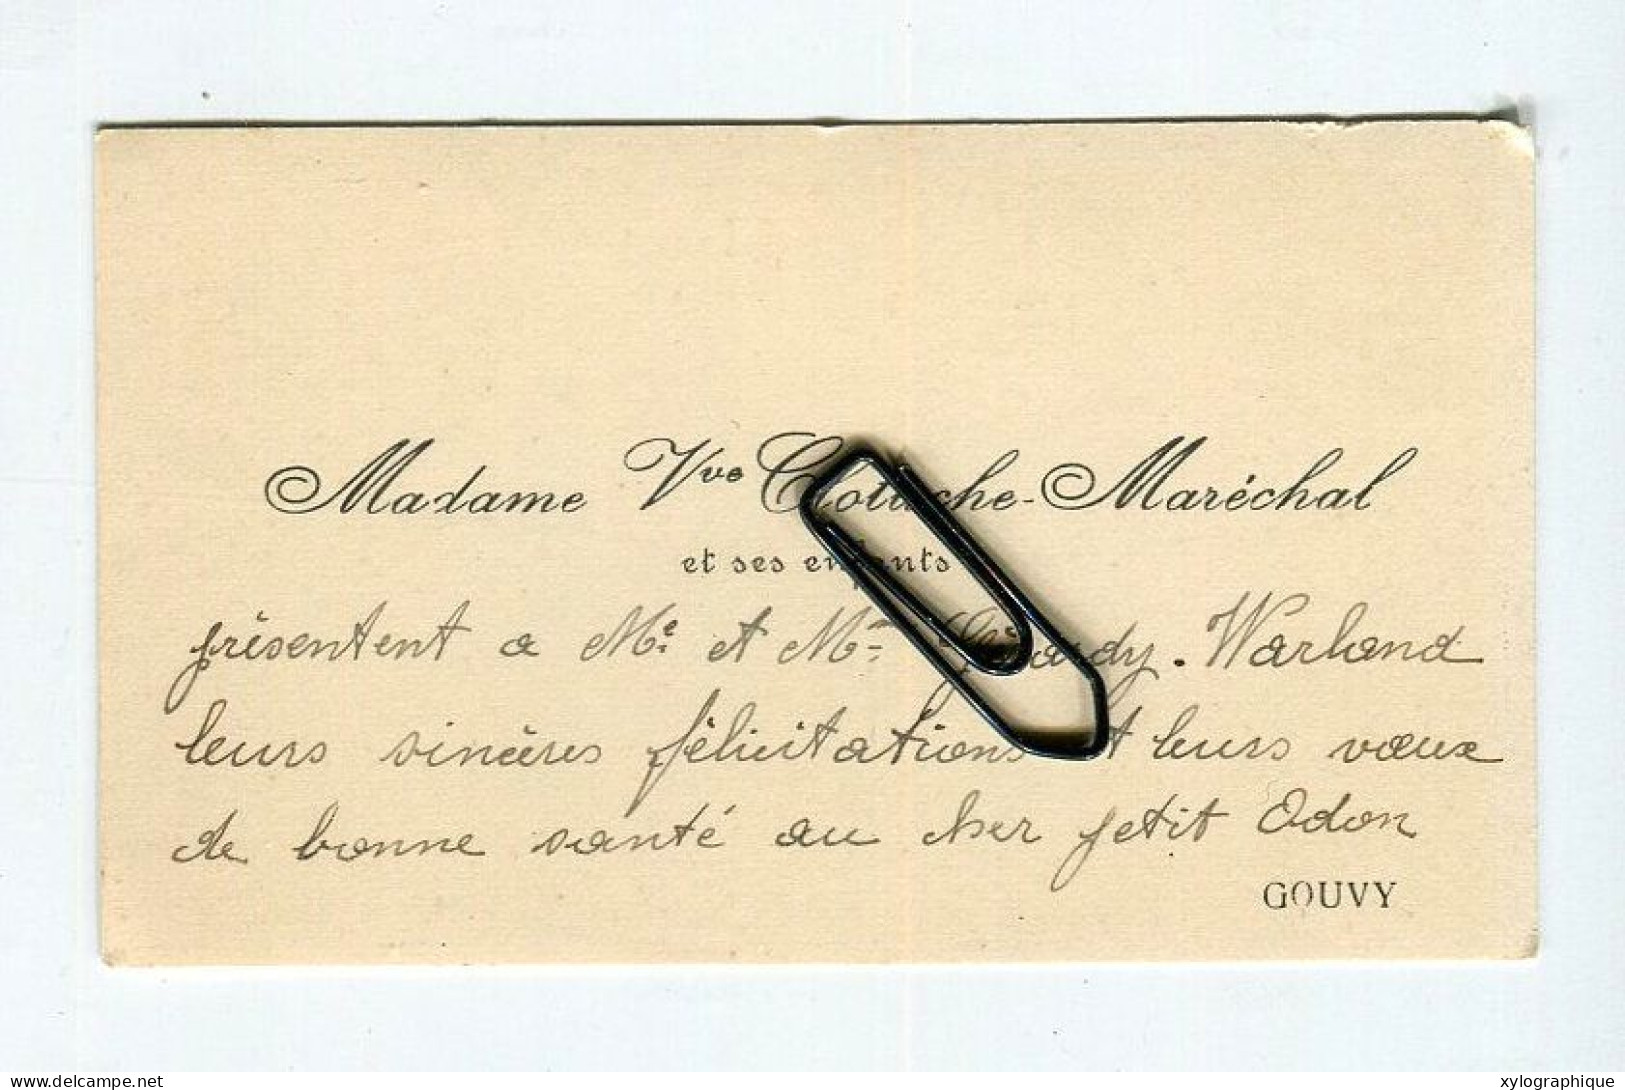 Madame Vve Clotuche-Maréchal
et ses enfants
présentent a Mr. et Me. Gérardy. Warland
leurs sincères félicitations et leurs vœux
de bonne santé au cher petit Odon
GOUVY
www.delcampe.net
xylographique